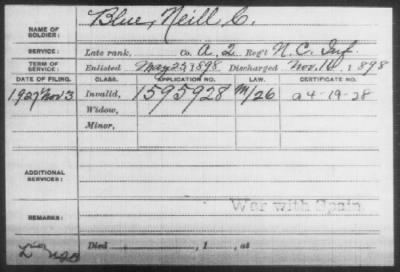 NAME OF SOLDIER: Blue, Neill C.
SERVICE: Late rank, Co. A, 2 Reg't N.C. Inf.
TERM OF SERVICE: Enlisted May 25, 1898 Discharged Nov. 14, 1898
DATE OF FILING. CLASS. APPLICATION NO. LAW. CERTIFICATE NO.
1927 Nov 3 Invalid, 1595928 M/26 a 4-19-28
Widow,
Minor,
ADDITIONAL SERVICES:
War with Spain
REMARKS:
Died , 1 , at